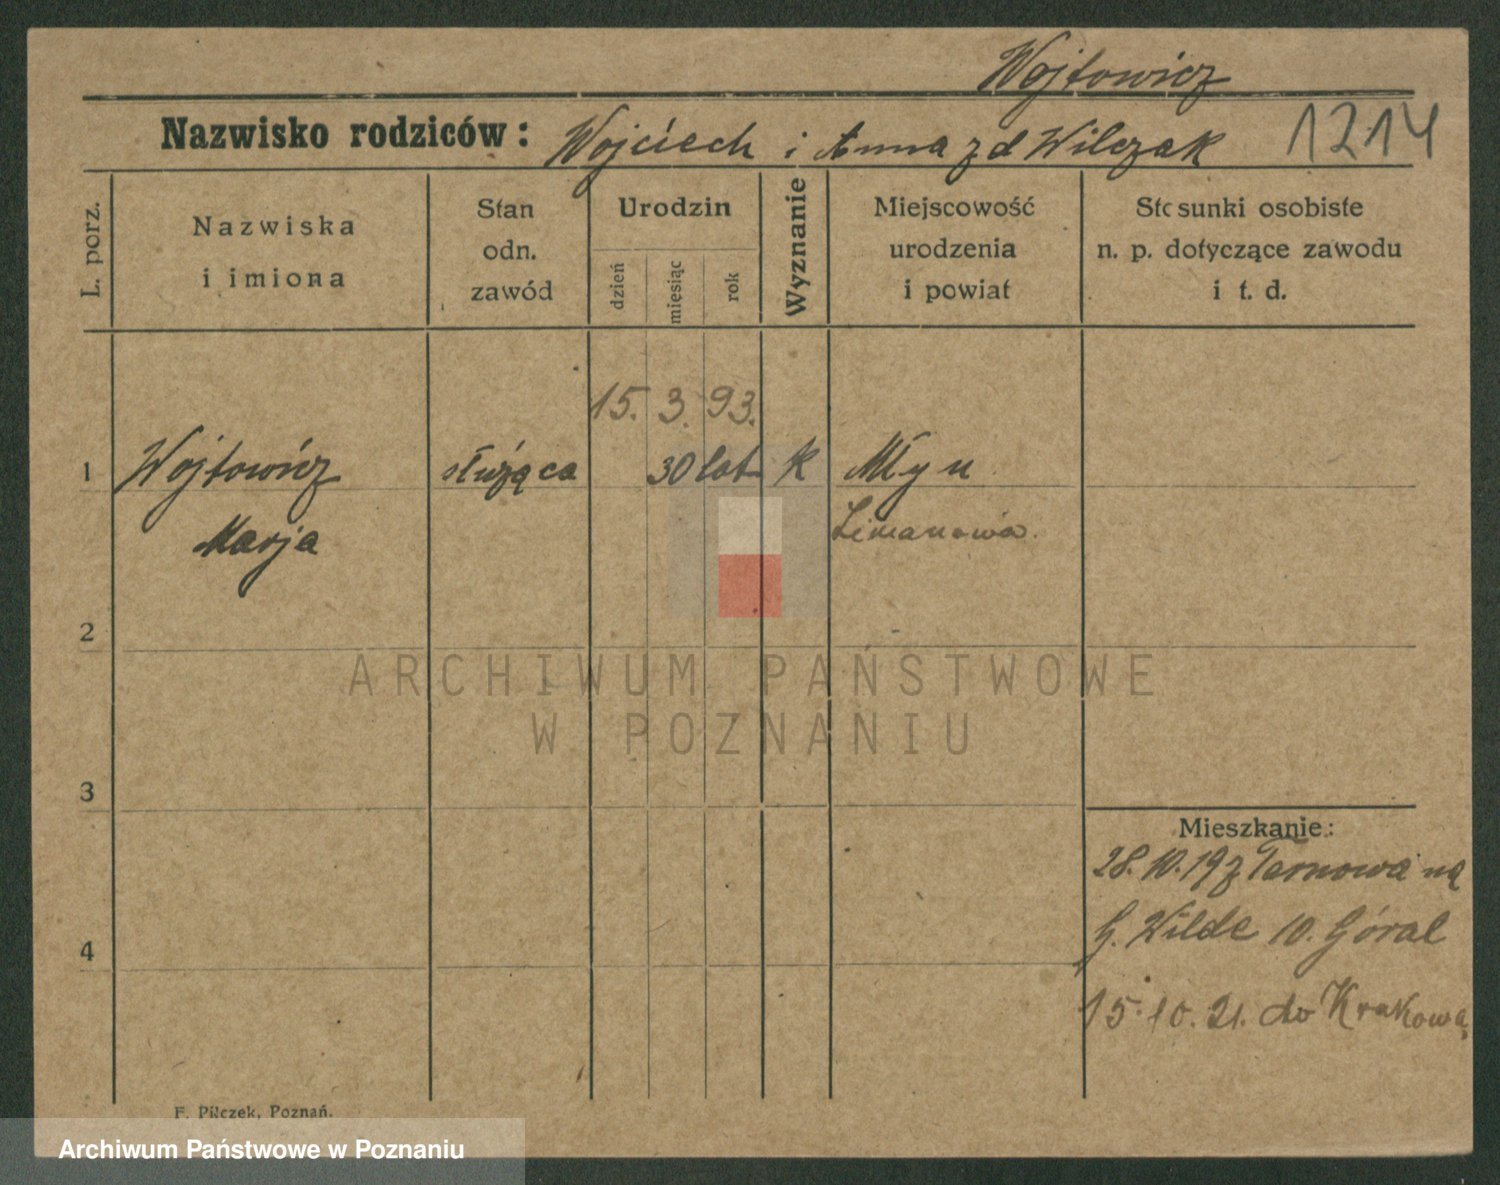 Wojtowicz
Nazwisko rodziców: Wojciech i Anna z d Wilczak 1214
L. porz.
Nazwiska
i imiona
Stan
odn.
zawód
Urodzin
dzień
miesiąc
rok
Wyznanie
Miejscowość
urodzenia
i powiat
Stosunki osobiste
n. p. dotyczące zawodu
i t. d.
15. 3. 93.
1 Wojtowicz służąca 30 lat K Młyn
Marja Limanowa.
2
3
4
Mieszkanie:
28.10.19 z Tarnowa na
G. Wilde 10. Góral
15.10.21. do Krakowa
F. Pilczek, Poznań.
ARCHIWUM PAŃSTWOWE
W POZNANIU
Archiwum Państwowe w Poznaniu